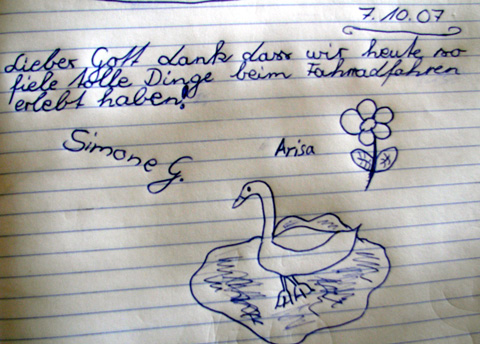 7.10.07
Lieber Gott dank dass wir heute so
fiele tolle Dinge beim Fahrradfahren
erlebt haben!
Simone G.
Arisa